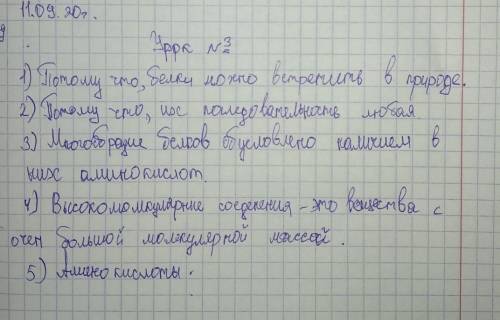 11.09.20г.
Урок №3
1) Потому что, белки можно встретить в природе.
2) Потому что, их последовательность любая
3) Многобразие белков обусловлено наличием в
них аминокислот.
4) Высокомомкулярные соеденения - это вещества с
очен большой молекулярной массой.
5) Аминокислоты.